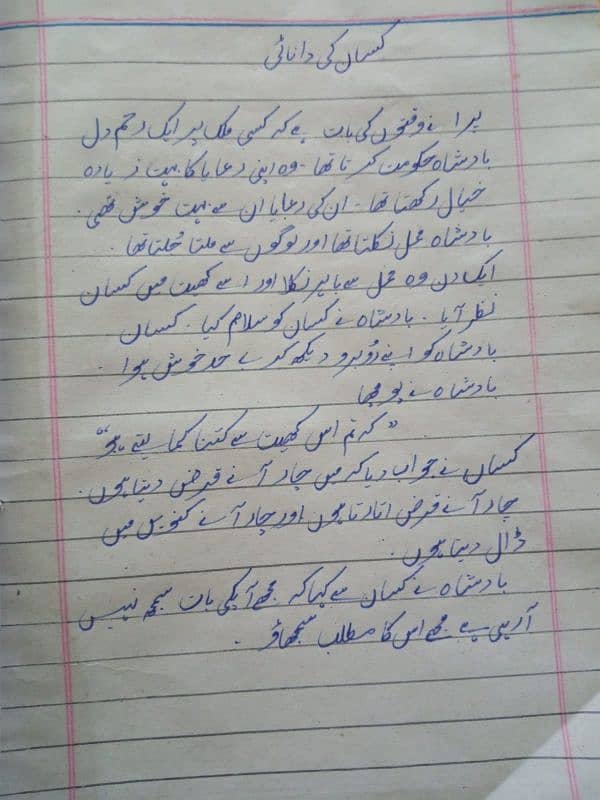 کسان کی دانائی
پرانے وقتوں کی بات ہے کہ کسی ملک پر ایک رحم دل
بادشاہ حکومت کرتا تھا۔ وہ اپنی رعایا کا بہت زیادہ
خیال رکھتا تھا۔ ان کی رعایا ان سے بہت خوش تھی۔
بادشاہ محل نکلتا تھا اور لوگوں سے ملتا جُلتا تھا۔
ایک دن وہ محل سے باہر نکلا اور اسے کھیت میں کسان
نظر آیا۔ بادشاہ نے کسان کو سلام کیا۔ کسان
بادشاہ کو اپنے رُوبرو دیکھ کر بے حد خوش ہوا۔
بادشاہ نے پوچھا
"کہ تم اس کھیت سے کتنا کما لیتے ہو"
کسان نے جواب دیا کہ میں چار آنے قرض دیتا ہوں۔
چار آنے قرض اتارتا ہوں اور چار آنے کنویں میں
ڈال دیتا ہوں۔
بادشاہ نے کسان سے کہا کہ مجھے آپکی بات سمجھ نہیں
آرہی ہے مجھے اس کا مطلب سمجھاؤ۔